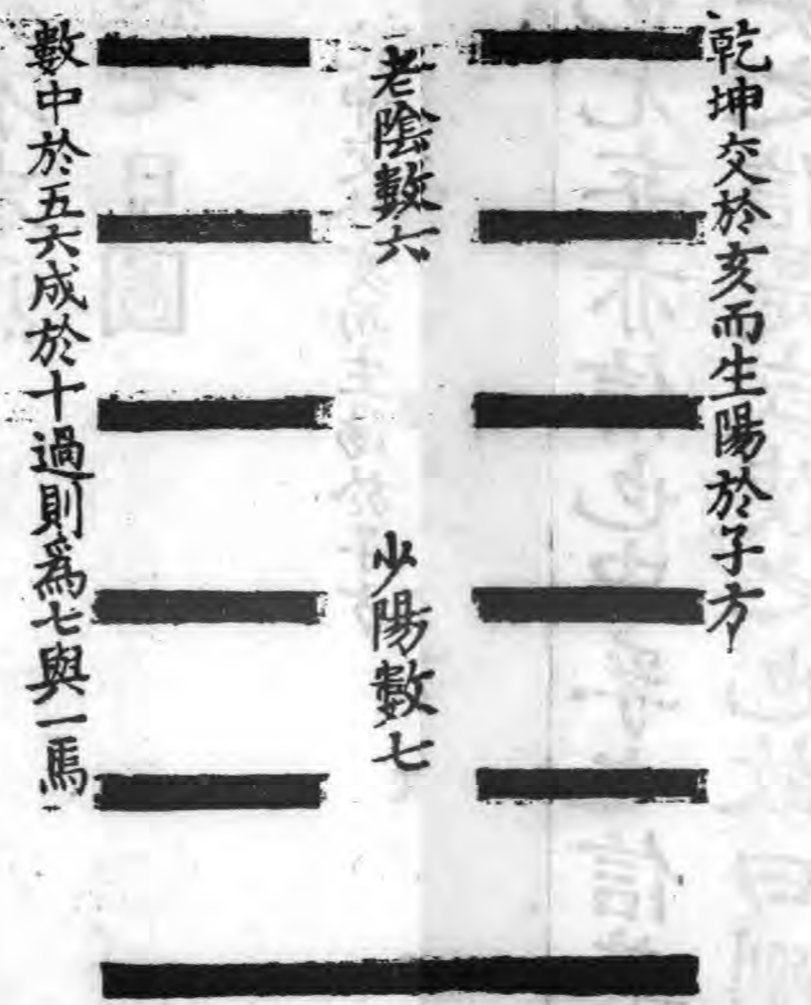 乾坤交於亥而生陽於子方
老陰數六
少陽數七
數中於五六成於十過則爲七與一焉